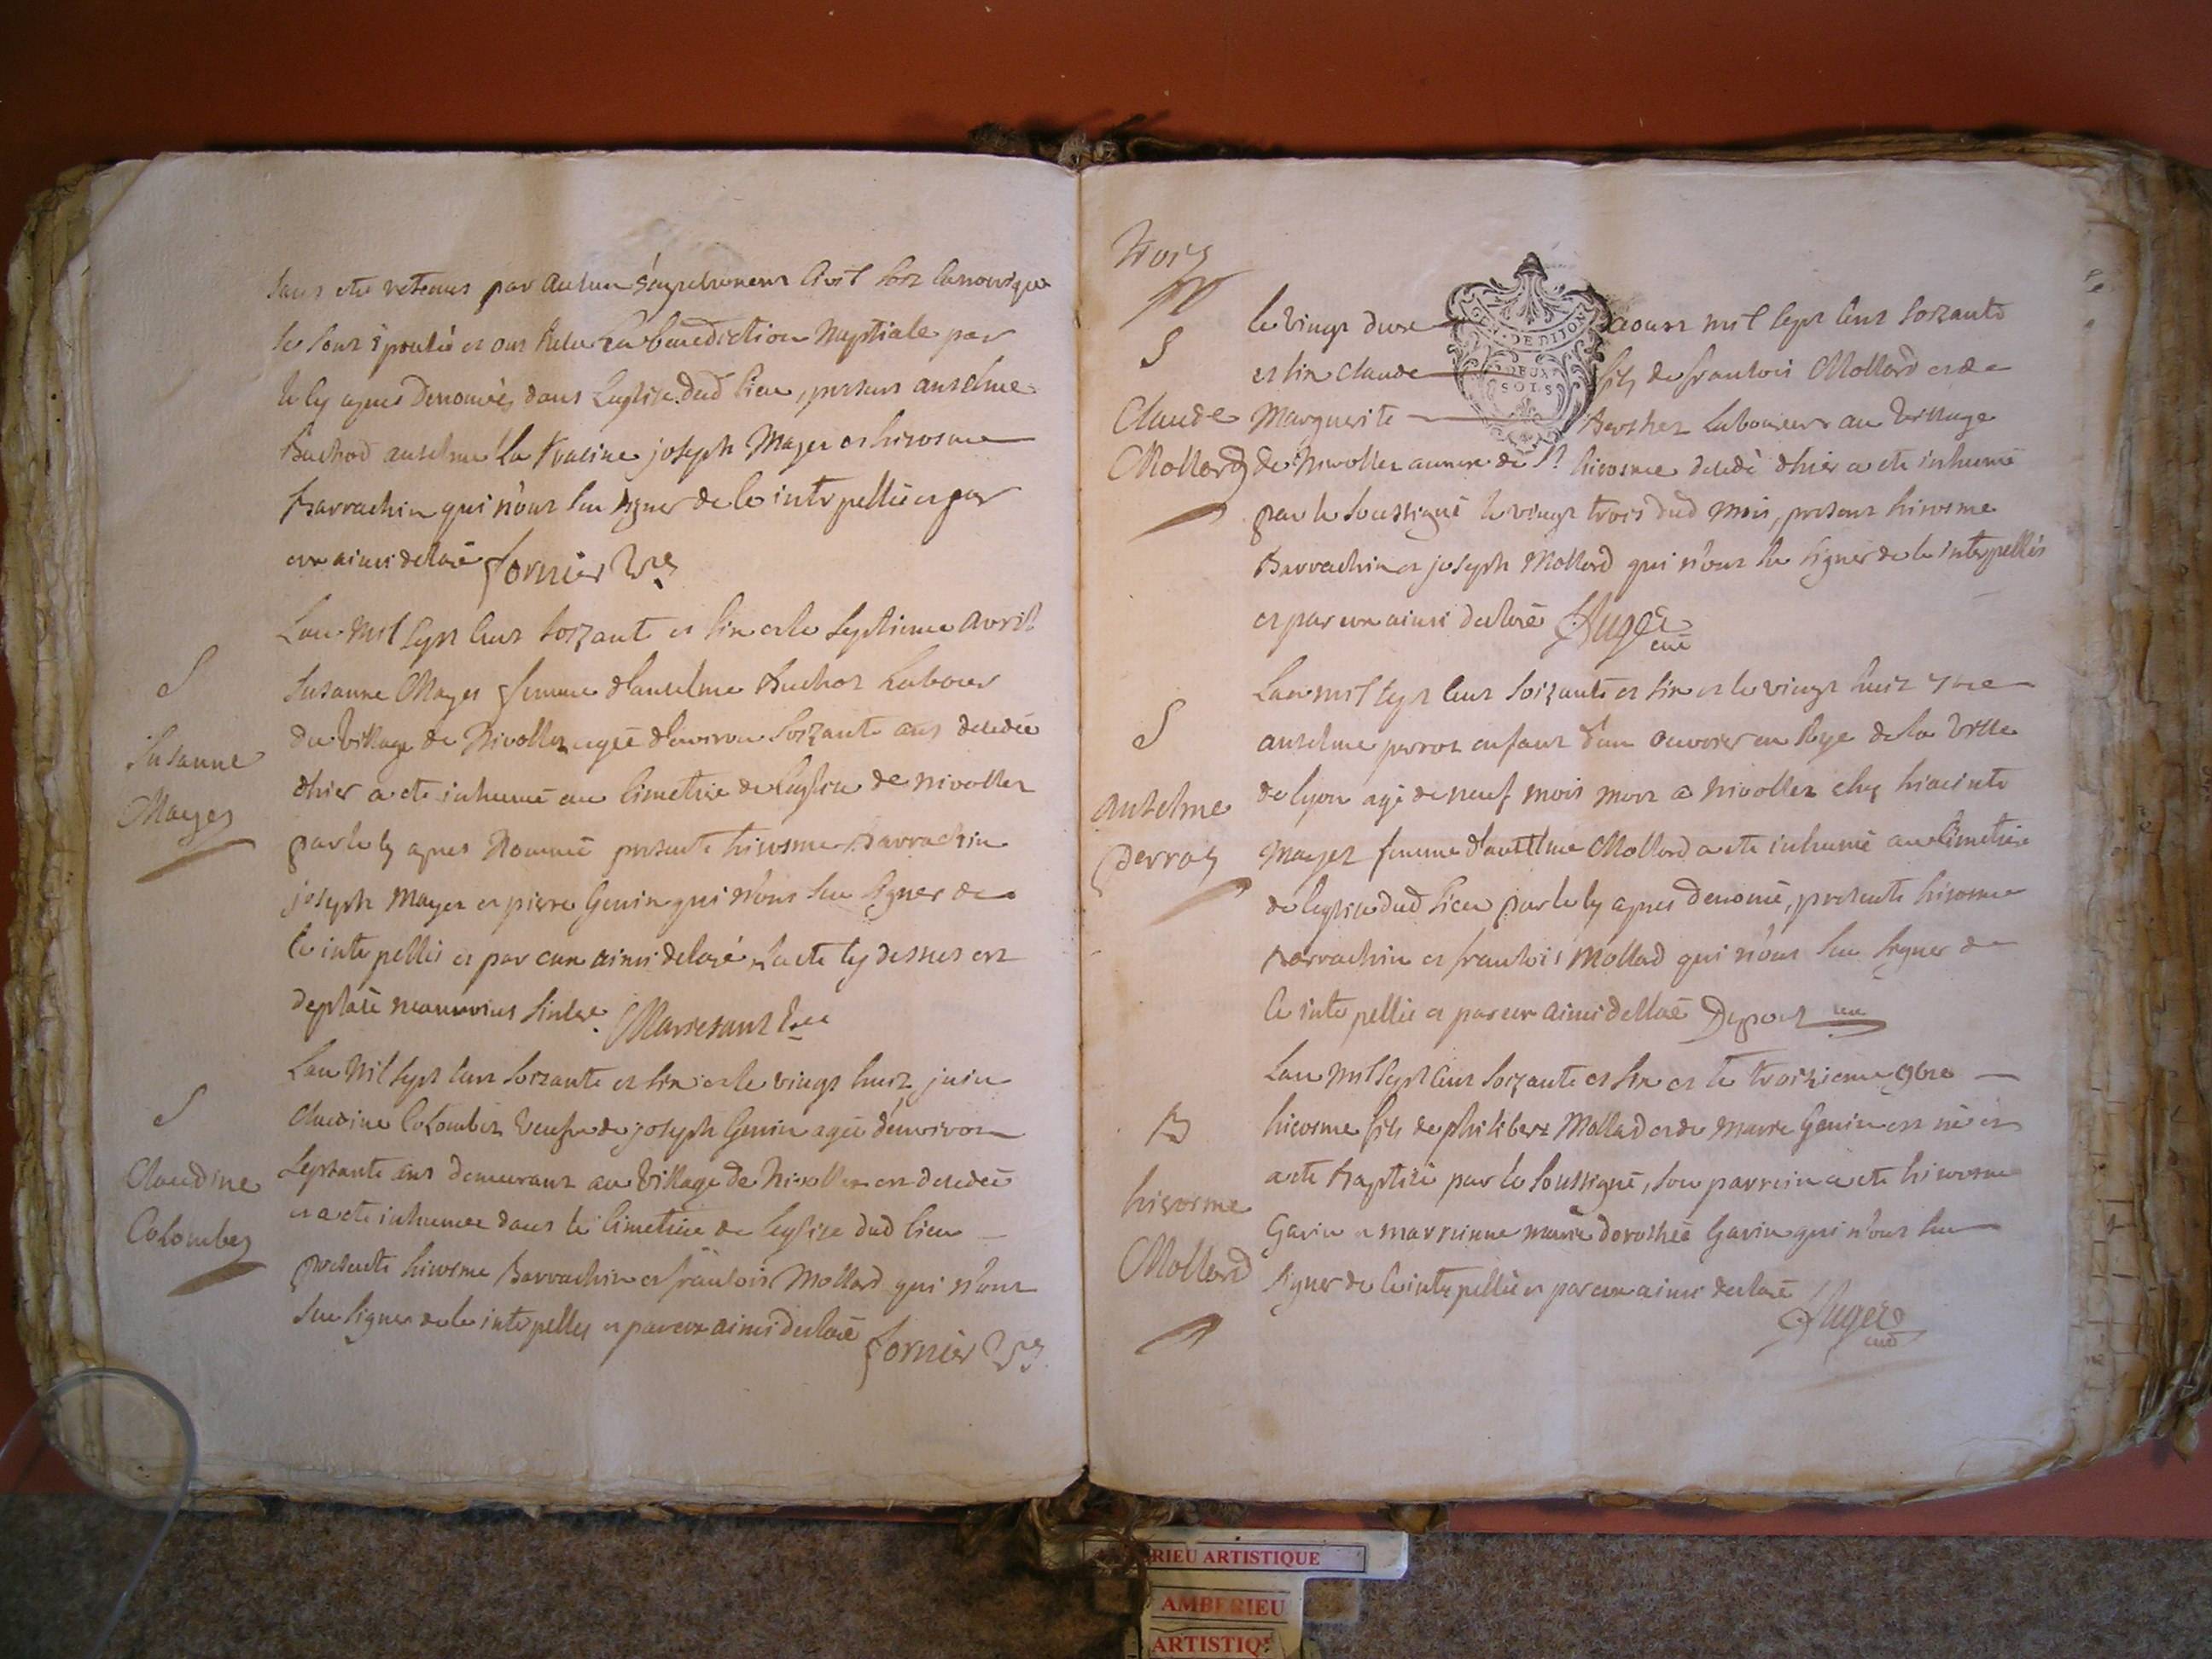 sans etre retenus par aucun empechement civil soit canonique
se sont epousé et ont recu la benediction Nuptiale par
le cy apres Denomé, dans L'eglise dud lieu, presens anselme
Buchod anselme La Racine joseph Mayer et hierosme
Barrachin qui n'ont su signer de ce interpellé et par
eux ainsi declaré fornier
L'an Mil sept cens soizante et six et le septieme avril
Susanne Mayer femme d'anselme Buchot Labour
du village de Nivollet agée d'environ soizante ans decedée
d'hier a ete inhumé au cimetiere de l'eglise de nivollet
par le cy apres Nommé presents hierosme Barrachin
joseph Mayer et pierre Genin qui n'ont su signer de
ce interpellés et par eux ainsi declaré, l'acte cy dessus est
deplacé neanmoins sincere.
S
Susanne
Mayer
L'an Mil sept cens soizante et six et le vingt huit juin
Claudine Colombet veufve de joseph Genin agée d'environ
septante ans demeurant au village de Nivollet est decedée
et a ete inhumée dans le cimetiere de l'eglise dud lieu
presents hierosme Barrachin et francois Mollard qui n'ont
su signer de ce interpelles et par eux ainsi declaré fornier
S
Claudine
Colombez
trois
le vingt deux aoust mil sept cens soizante
et six Claude fils de francois Mollard et de
Marguerite Berthet Laboureur au village
de Nivollet annexe de St hierosme decedé d'hier a ete inhumé
par le soussigné le vingt trois dud mois, presens hierosme
Barrachin et joseph Mollard qui n'ont su signer de ce interpellés
et par eux ainsi declaré Auger
curé
GEN. DE DIJON
DEUX
SOLS
S
Claude
Mollard
L'an mil sept cens soizante et six et le vingt huit 7bre
anselme perrot enfant d'un ouvrier en soye de la ville
de lyon agé de neuf mois mort a nivollet chez hiacinte
Mayet femme d'anselme Mollard a ete inhumé au cimetiere
de l'eglise dud lieu par le cy apres denomé, presents hierosme
Barrachin et francois Mollard qui n'ont su signer de
ce interpellé et par eux ainsi declaré
S
anselme
perrot
L'an mil sept cens soizante et six et le troizieme 9bre
hierosme fils de philibert Mollard et de Marie Genin est né et
a ete baptisé par le soussigné, son parrein a ete hierosme
Gavin et marreinne marie dorothée Gavin qui n'ont su
signer de ce interpellé et par eux ainsi declaré
Auger
curé
B
hierosme
Mollard
RIEU ARTISTIQUE
AMBERIEU
ARTISTIQ